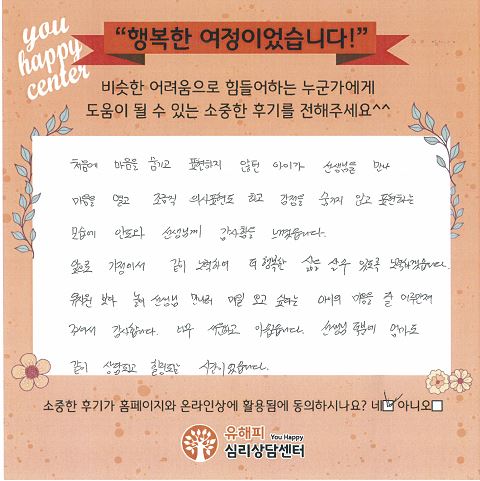 you
happy
center
“행복한 여정이었습니다!”
비슷한 어려움으로 힘들어하는 누군가에게
도움이 될 수 있는 소중한 후기를 전해주세요^^
처음에 마음을 숨기고 표현하지 않던 아이가 선생님을 만나
마음을 열고 조금씩 의사표현도 하고 감정을 숨기지 않고 표현하는
모습에 안도와 선생님께 감사함을 느꼈습니다.
앞으로 가정에서 같이 노력하여 더 행복한 삶을 살 수 있도록 노력하겠습니다.
유치원 보다 선생님 만나러 매일 오고 싶다는 아이의 마음을 잘 어루만져
주셔서 감사합니다. 너무 서운하고 아쉽습니다. 선생님 덕분에 엄마도
같이 성장하고 힐링되는 시간이였습니다.
소중한 후기가 홈페이지와 온라인상에 활용됨에 동의하시나요? 네☑아니오☐
유해피 You Happy
심리상담센터